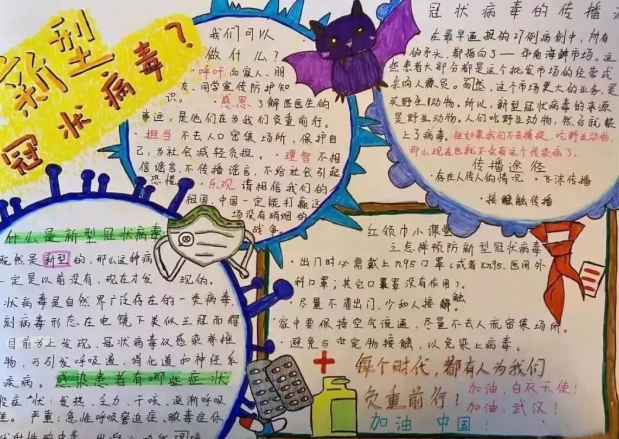 新型
冠状病毒?
我们可以
做什么?
·呼吁向家人、朋
友、同学宣传防护知
识。·感恩了解医医生的
事迹,是他们在为我们负重前行。
·担当 不去人口密集场所,保护自
己,为社会减轻负担。·理智不相
信谣言,不传播谣言,不给社会引起
恐慌。·乐观 请相信我们的
祖国,中国一定能打赢这
场没有硝烟的
战争。
冠状病毒的传播
在最早通报的27例病例中,所有
的矛头都指向了——华南海鲜市场。这
些患者大部分都是这个批发市场的经营或
采购人员。而然,这个市场更大的业务,是
买野生动物。所以,新型冠状病毒的来源
是野生动物,人们吃野生动物,然后就
上了病毒。但如果我们不去捕捉、吃野生动物,
那么现在也就不会有这个传染病了。
传播途径
·存在人传人的情况 ·飞沫传播
·接触传播
什么是新型冠状病毒
既然是新型的,那么这种病
一定是以前没有,现在才发现的。
状病毒是自然界广泛存在的一类病毒,
刻病毒形态在电镜下类似王冠而
目前为止发现,冠状病毒仅感染脊椎
物,可引发呼吸道、消化道和神经系
疾病。感染患者有哪些症状
症状:发热、乏力、干咳、逐渐呼吸
严重:急性呼吸窘迫症、脓毒症休
红领巾小课堂
三点牌预防新型冠状病毒
·出门时必需戴上N95口罩(或者KN95、医用外
科口罩;其它口罩没有作用)。
·尽量不用出门,少和人接触
家中要保持空气流通,尽量不去人流密集场所。
·避免与宠物接触,以免染上病毒。
每个时代,都有人为我们
负重前行!
加油,白衣天使!
加油,武汉!
加油,中国!